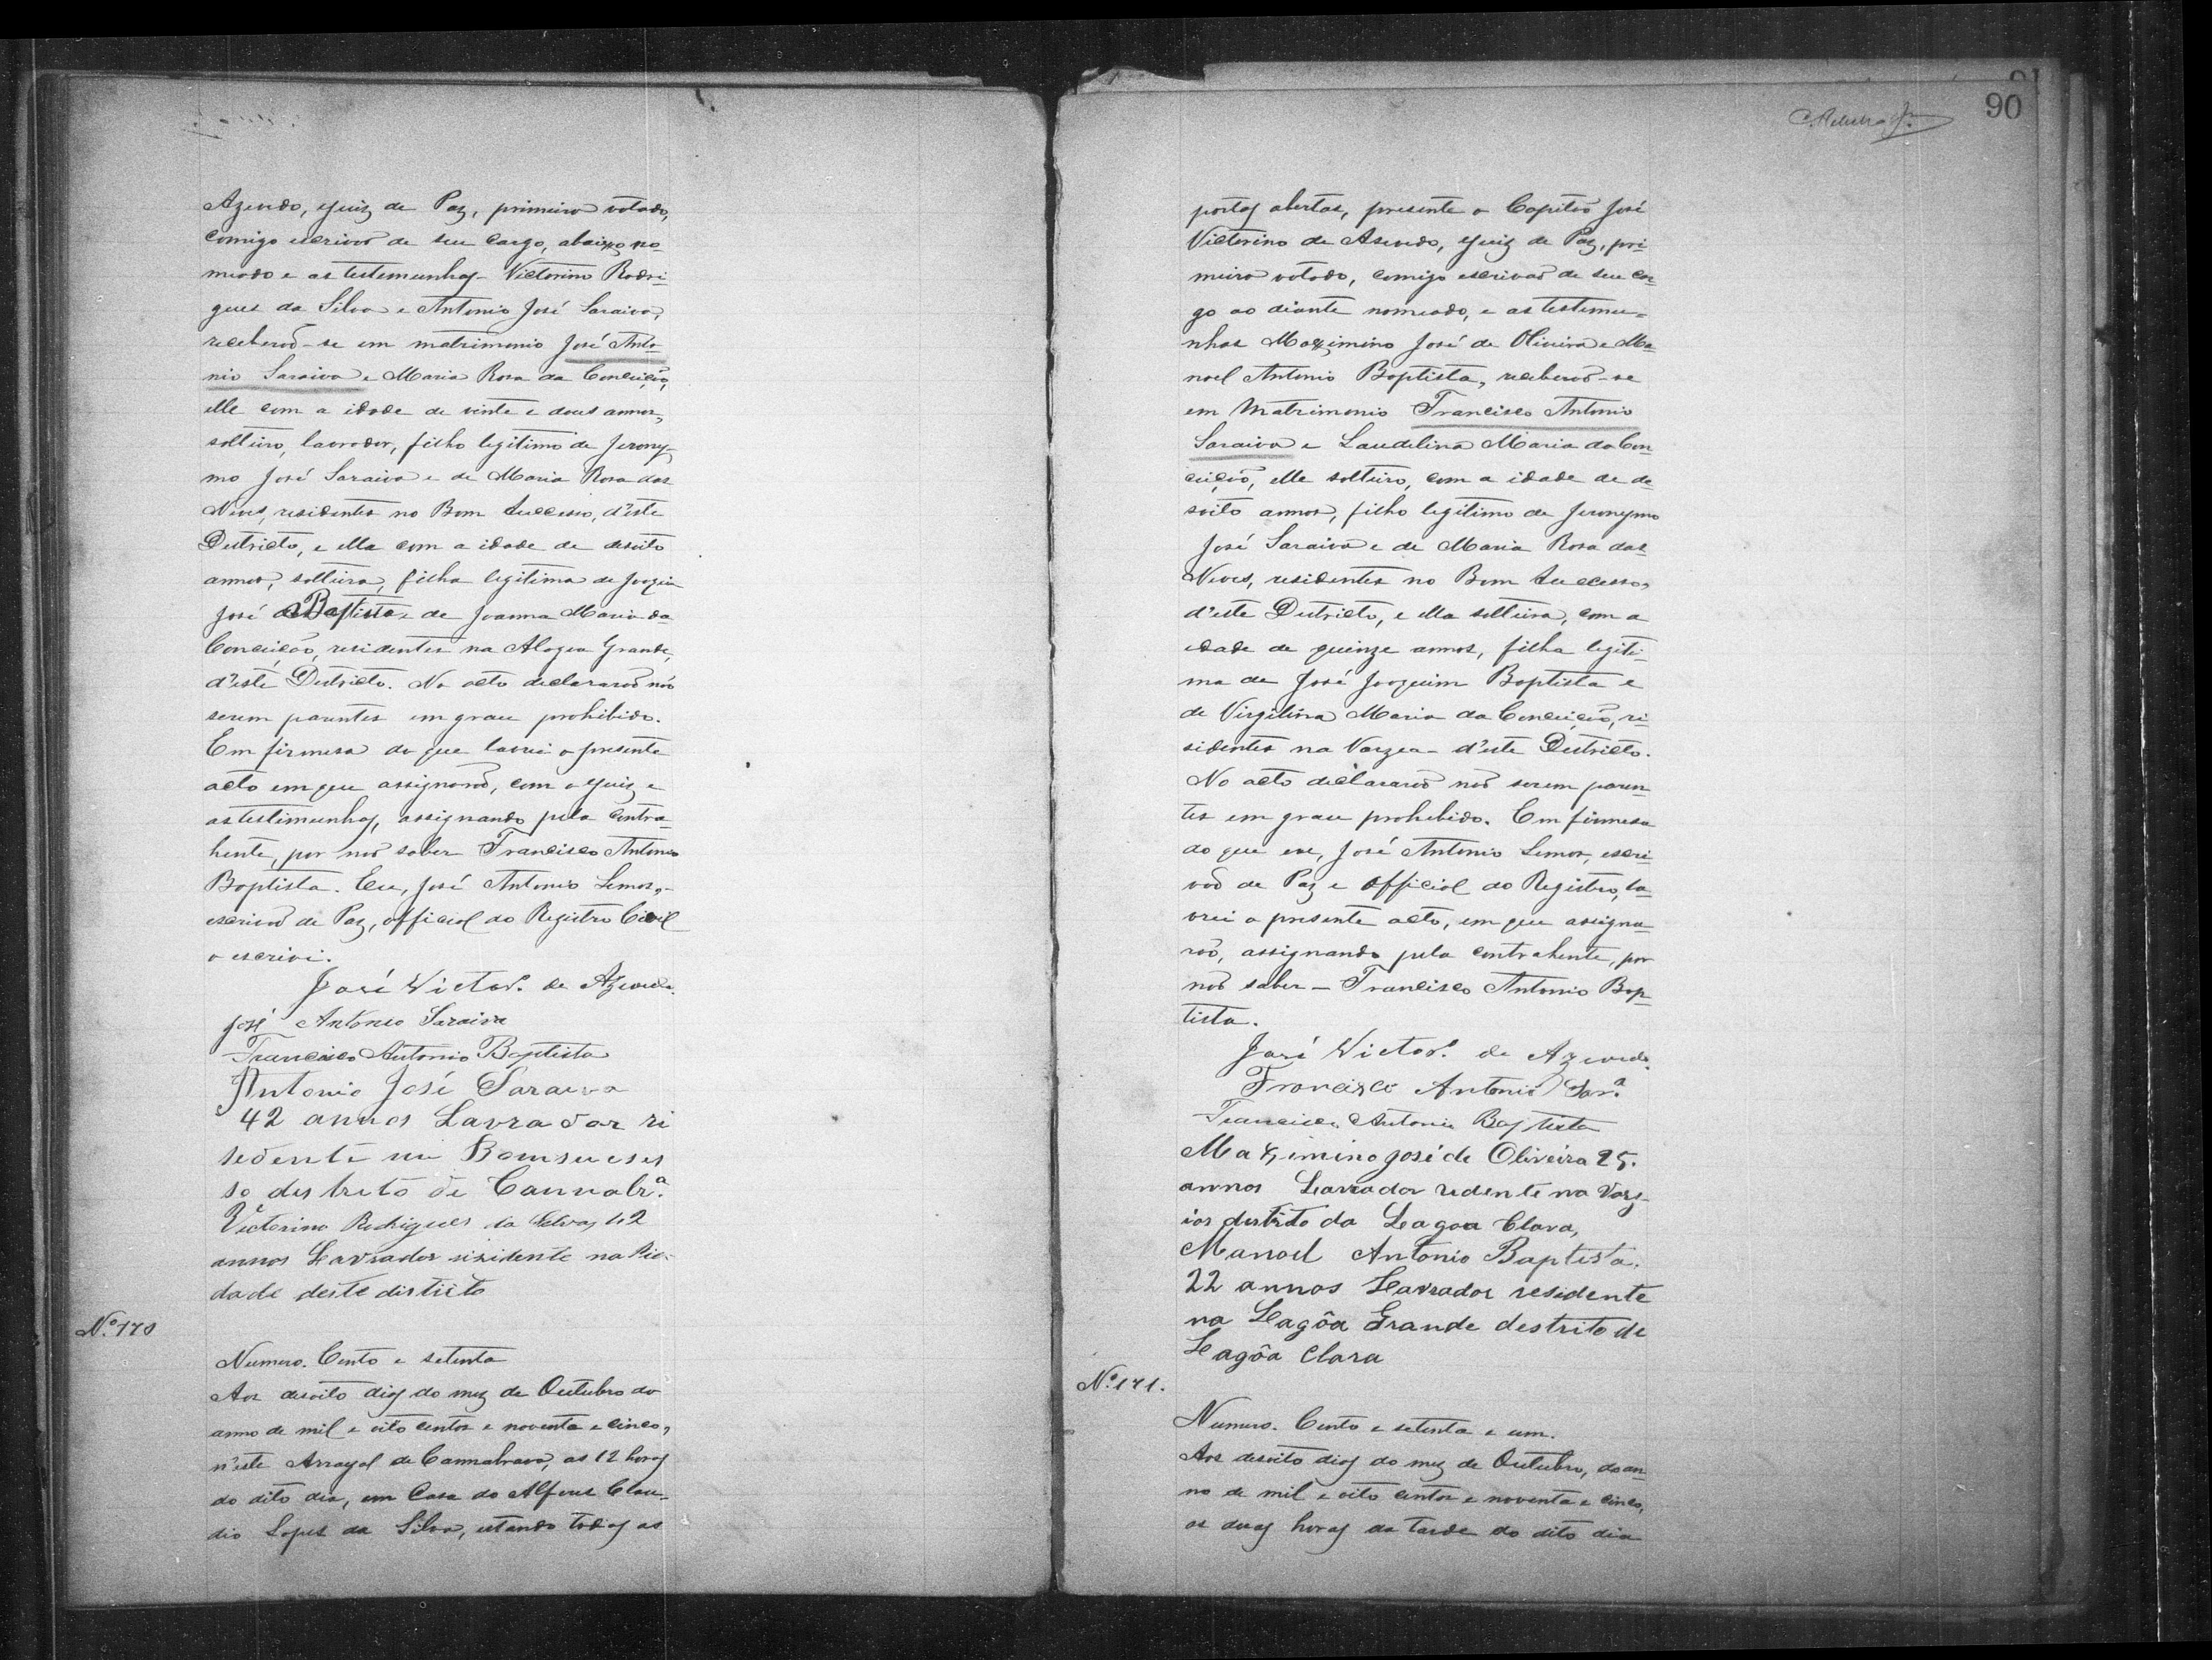 Azevedo, Juiz de Paz, primeiro votado,
comigo escrivaõ de seu cargo, abaixo no-
meado e as testemunhas - Victorino Rodri-
gues da Silva e Antonio José Saraiva,
receberaõ-se em matrimonio José Anto-
nio Saraiva e Maria Rosa da Conceição,
elle com a idade de vinte e dous annos,
solteiro, lavrador, filho legitimo de Jerony-
mo José Saraiva e de Maria Rosa das
Neves, residentes no Bom Successo, d'este
Destricto, e ella com a idade de desoito
annos, solteira, filha legitima de Joaquim
José Baptista e de Joanna Maria da
Conceição, residentes na Alagoa Grande,
d'este Destricto. No acto declararaõ não
serem parentes em grau prohibido.
Em firmesa do que lavrei o presente
acto em que assignaraõ, com o Juiz e
as testemunhas, assignando pela contra-
hente, por naõ saber Francisco Antonio
Baptista. Eu, José Antonio Lemos,-
escrivaõ de Paz, official do Registro Civil
o escrivi.
José Victor.º de Azevedo.
José Antonio Saraiva
Francisco Antonio Baptista
Antonio José Saraiva
42 annos Lavrador ri
sedente no Bomsuces
so destreto de Cannabr.ª
Victorino Rodrigues da Silva, 42
annos Lavrador risidente na Pie-
dade deste districto
N.º 170
Numero. Cento e setenta
Aos desoito dias do mez de Outubro do
anno de mil e oito centos e noventa e cinco,
n'este Arrayal de Cannabrava, as 12 horas
do dito dia, em Casa do Alferes Clau-
dio Lopes da Silva, estando todas as
90
portas abertas, presente o Capitão José
Victorino de Asevedo, Juiz de Paz, pri-
meiro votado, comigo escrivaõ de seu car-
go ao diante nomeado, e as testemu-
nhas Maximino José de Oliveira e Ma-
noel Antonio Baptista, receberaõ-se
em Matrimonio Francisco Antonio
Saraiva e Laudelina Maria da Con-
ceição, elle solteiro, com a idade de de-
soito annos, filho legitimo de Jeronymo
José Saraiva e de Maria Rosa das
Neves, residentes no Bom Successo,
d'este Destricto, e ella solteira, com a
idade de quinze annos, filha legiti-
ma de José Joaquim Baptista e
de Virgilina Maria da Conceição, re-
sidentes na Vargea - d'este Destricto.
No acto declararaõ naõ serem paren-
tes em grau prohebido. Em firmesa
do que eu, José Antonio Lemos, escri-
vaõ de Paz e official do Registro, la-
vrei o presente acto, em que assigna-
raõ, assignando pela contrahente, por
naõ saber - Francisco Antonio Bap-
tista.
José Victor.º de Azevedo.
Francisco Antonio Sar.ª
Francisco Antonio Baptista
Maximino José de Oliveira 25.
annos Lavrador redente na Varg-
ias destrito da Lagoa Clara,
Manoel Antonio Baptista.
22 annos Lavrador residente
na Lagôa Grande destrito de
Lagôa Clara
N.º 171.
Numero. Cento e setenta e um.
Aos desoito dias do mez de Outubro, do an-
no de mil e oito centos e noventa e cinco,
as duas horas da tarde do dito dia